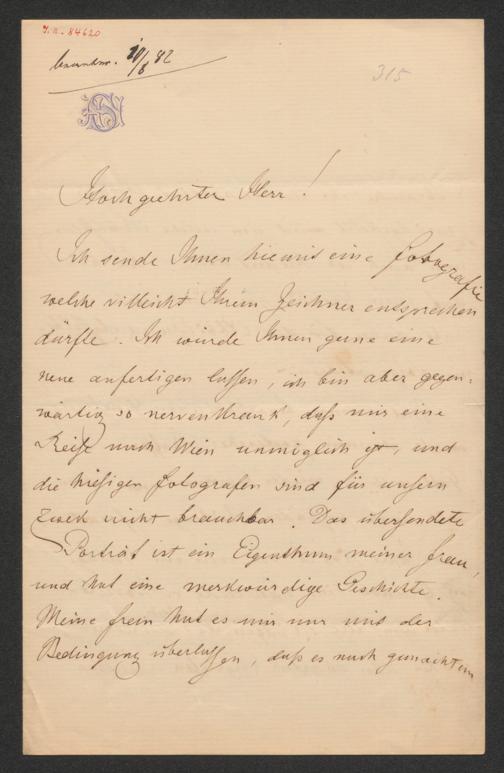 I.N. 84620
beantw. 10/8 82
315
Hochgeehrter Herr!
Ich sende Ihnen hiemit eine fotografie
welche villeicht Ihrem Zeichner entsprechen
dürfte. Ich würde Ihnen gerne eine
neue anfertigen lassen, ich bin aber gegen-
wärtig so nervenkrank, daß mir eine
Reise nach Wien unmöglich ist, und
die hiesigen fotografen sind für unsern
Zwek nicht brauchbar. Das übersendete
Porträt ist ein Eigenthum meiner frau,
und hat eine merkwürdige Geschichte.
Meine frau hat es mir nur mit der
Bedingung überlassen, daß es nach gemachtem